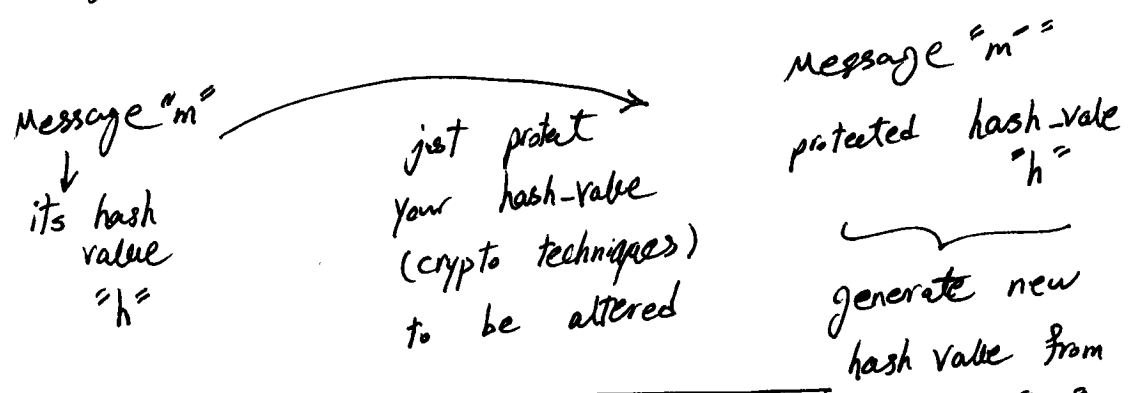 Message "m"
its hash
value
"h"
just protect
your hash-value
(crypto techniques)
to be altered
Message "m"
protected hash-vale
"h"
generate new
hash value from